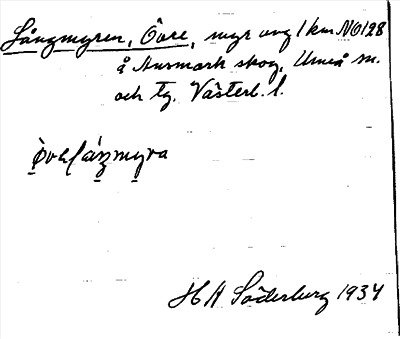 Långmyren, Övre, myr omg 1 km NO 128
å Ansmark skog, Umeå sn.
och tg. Västerb. l.
Òvɷlánzmyra
H A Söderberg 1934